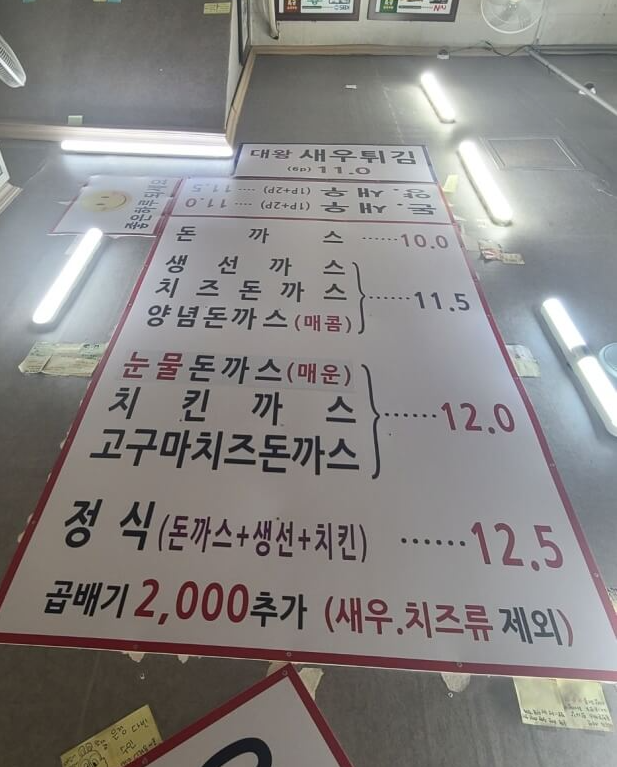 대왕 새우튀김
(9p) 11.0
양.새우 (1P+2P) .... 11.5
돈.새우 (1P+2P) .... 11.0
돈까스 ......10.0
생선까스
치즈돈까스 ......11.5
양념돈까스(매콤)
눈물돈까스(매운)
치킨까스 ......12.0
고구마치즈돈까스
정식(돈까스+생선+치킨) ......12.5
곱배기 2,000추가 (새우.치즈류 제외)
좋은하루 되세요